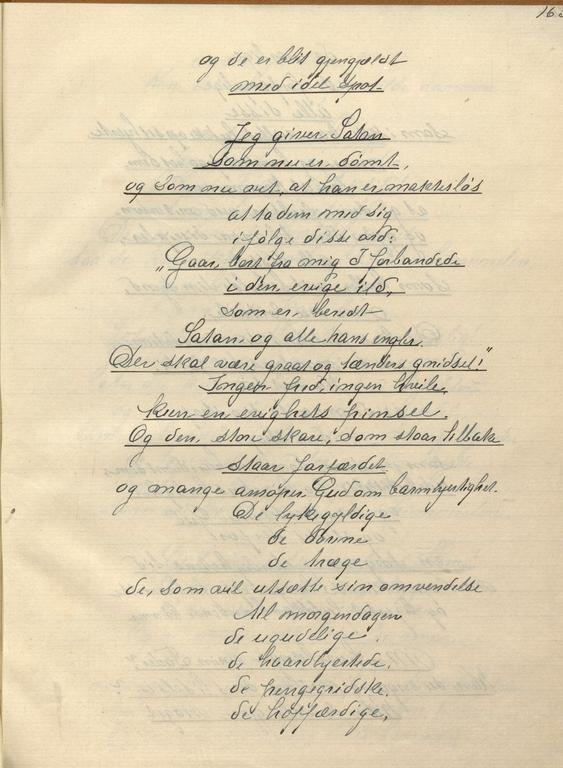 og de er blit gjengjældt
med idel spot.
Jeg giver Satan
som nu er dømt,
og som nu vet, at han er makteslös
at ta dem med sig
ifølge disse ord:
"Gaar bort fra mig I forbandede
i den evige ild,
som er beredt
Satan og alle hans engler.
Der skal være graat og tænders gnidsel!"
Ingen fred, ingen hvile,
kun en evighets pinsel.
Og den store skare, som staar tilbake
staar forfærdet
og mange anroper Gud om barmhjertighet.
De lykegyldige
de dovne
de træge
de, som vil utsætte sin omvendelse
til morgendagen
de ugudelige.
de haardhjertede,
de pengegridske,
de hoffærdige,